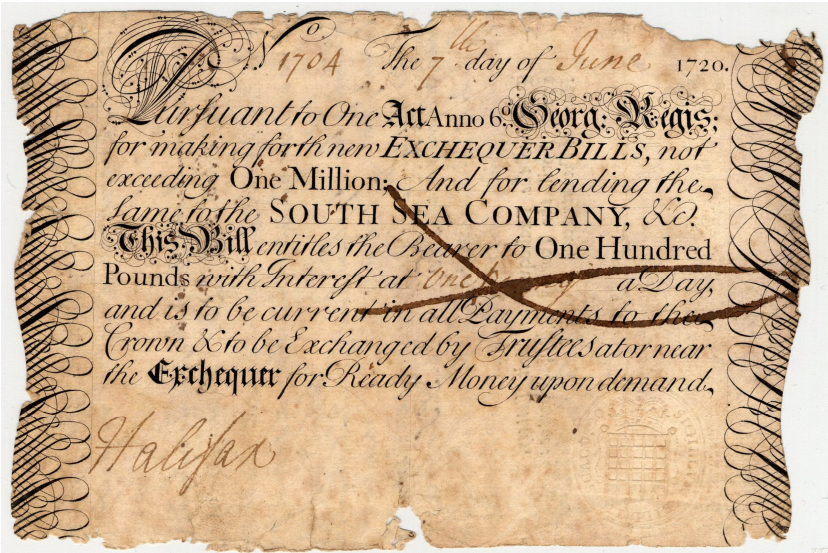 No. 1704 The 7th day of June 1720.
Pursuant to One Act Anno 6o. Georg: Regis;
for making forth new EXCHEQUER BILLS, not
exceeding One Million; And for lending the
same to the SOUTH SEA COMPANY, &c.
This Bill entitles the Bearer to One Hundred
Pounds with Interest at One Penny a Day,
and is to be current in all Payments to the
Crown & to be Exchanged by Trustees at or near
the Exchequer for Ready Money upon demand.
Halifax